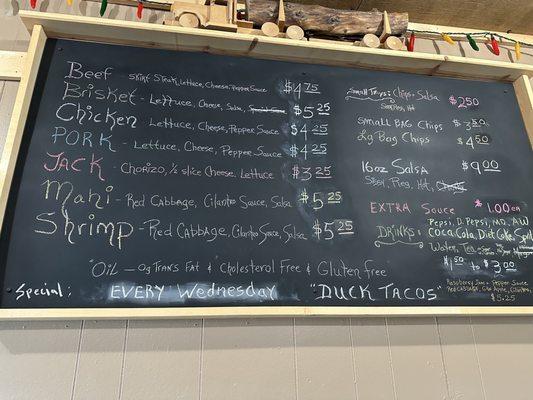 Beef Skirt Steak, Lettuce, Cheese, Pepper Sauce $4.75
Brisket - Lettuce, Cheese, Salsa, $5.25
Chicken - Lettuce, Cheese, Pepper Sauce $4.25
PORK - Lettuce, Cheese, Pepper Sauce $4.25
JACK - Chorizo, 1/2 slice Cheese, Lettuce $3.25
Mahi - Red Cabbage, Cilantro Sauce, Salsa $5.25
Shrimp - Red Cabbage, Cilantro Sauce, Salsa $5.25
"Oil - 0g Trans Fat & Cholesterol Free & Gluten free
Special: EVERY Wednesday "DUCK TACOS"
Small Tray: Chips, Salsa $2.50
small BAG Chips $3.50
Lg Bag Chips $4.50
16oz Salsa $9.00
EXTRA Sauce $1.00 ea
DRINKS: Pepsi, D. Pepsi, MD, AW
Coca Cola, Diet Coke,
Water, Tea
$1.50 to $3.00
Raspberry Sauce, Pepper Sauce
Red Cabbage, Apple, Cilantro,
$5.25